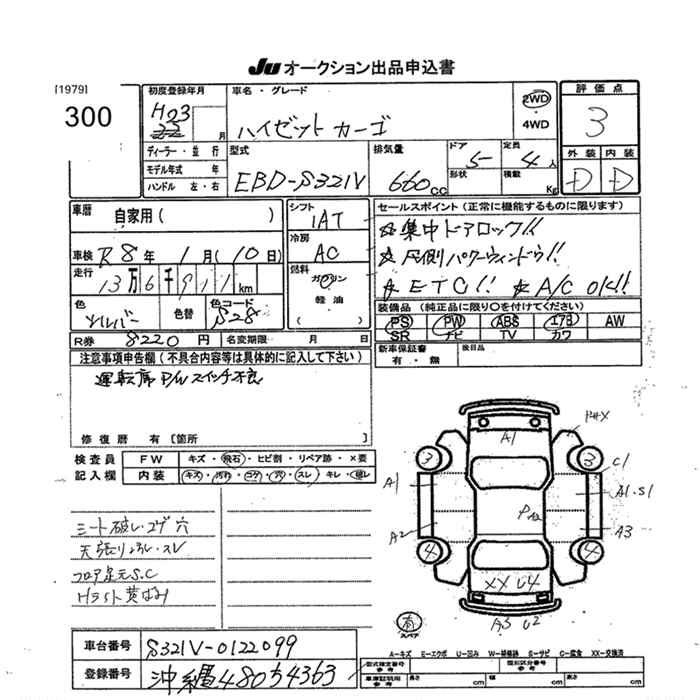 Ju オークション出品申込書
[1979]
300
初度登録年月
H23
22
月
ディーラー・並行
モデル年式 年
ハンドル 左・右
車名・グレード
ハイゼットカーゴ
2WD
・
4WD
型式
EBD-S321V
排気量
660cc
ドア
5
形状
定員
4人
積載
Kg
評価点
3
外装 内装
D D
車歴
自家用( )
車検 R8年 1月(10日)
走行
13万6千911km
色
シルバー
色替
色コード
S28
R券 8220円
名変期限 月 日
シフト
IAT
冷房
AC
燃料
ガソリン
軽油
( )
セールスポイント(正常に機能するものに限ります)
☆集中ドアロック!!
☆尺側パワーウィンドウ!!
☆ETC!! ☆A/C OK!!
装備品(純正品に限り○を付けてください)
PS PW ABS エアB AW
SR ナビ TV カワ
新車保証書
有・無
後日品
注意事項申告欄(不具合内容等は具体的に記入して下さい)
運転席P/Wスイッチ不良
修復歴 有[箇所 ]
検査員
記入欄
FW キズ・飛石・ヒビ割・リペア跡・×要
内装 キズ・汚れ・コゲ・穴・スレ・キレ・破レ
シート破レ・コゲ穴
天張りよごれ・スレ
フロア足元S.C
Hライト黄ばみ
A1
3
3
C1
A1
A1.S1
A2
A3
4
4
XX U4
A3 U2
有
スペア
車台番号 S321V-0122099
登録番号 沖縄480う4363
A=キズ E=エクボ U=凹み W=補修跡 S=サビ C=腐食 XX=交換済
型式指定番号
参考
類別区分番号
参考
車庫証明用
参考
長さ cm 幅 cm 高さ cm